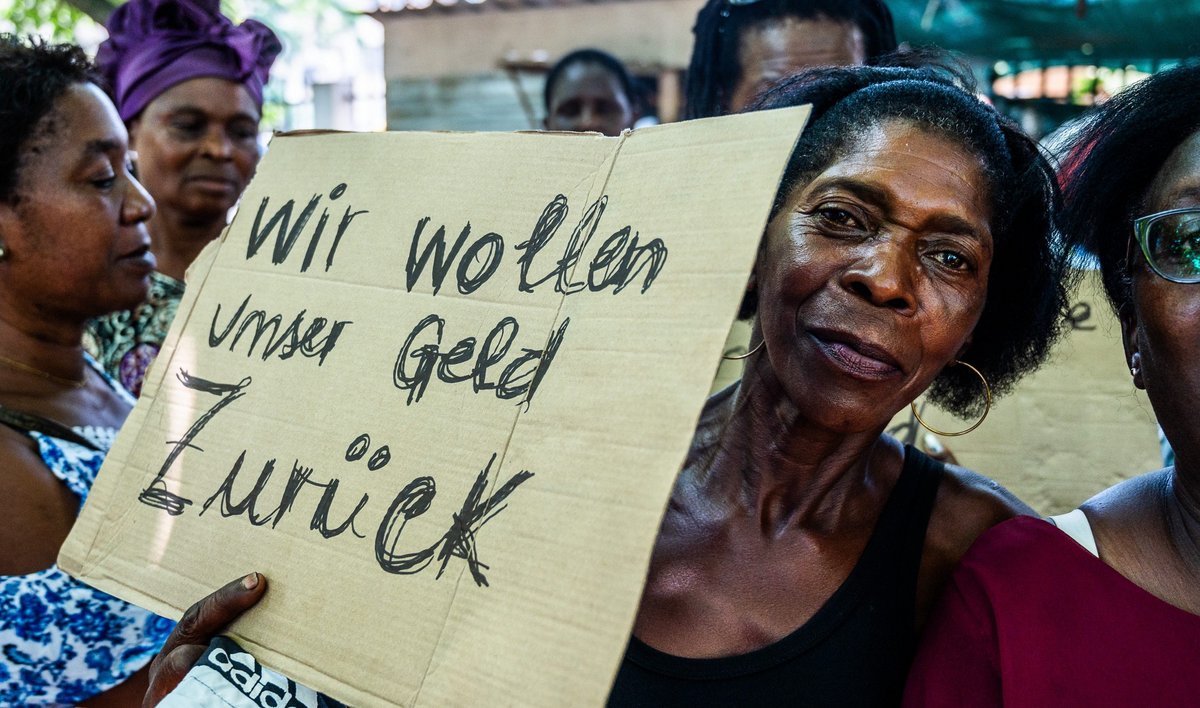 Wir wollen
unser Geld
Zurück
adidas